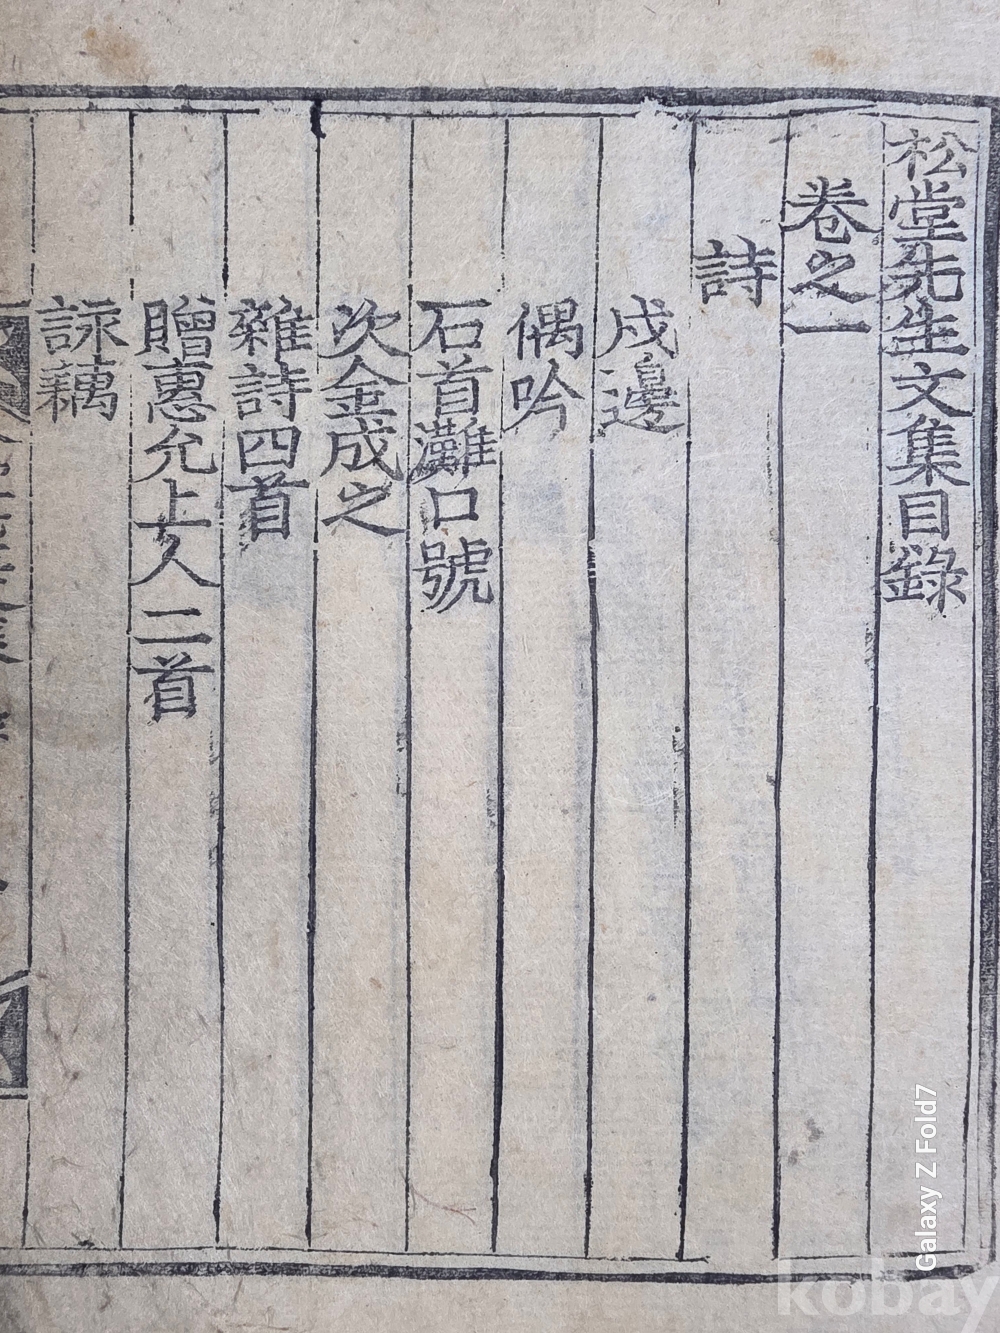 松堂先生文集目錄
卷之一
詩
戍邊
偶吟
石首灘口號
次金成之
雜詩四首
贈惠允上人二首
詠藕
Galaxy Z Fold7
kobay